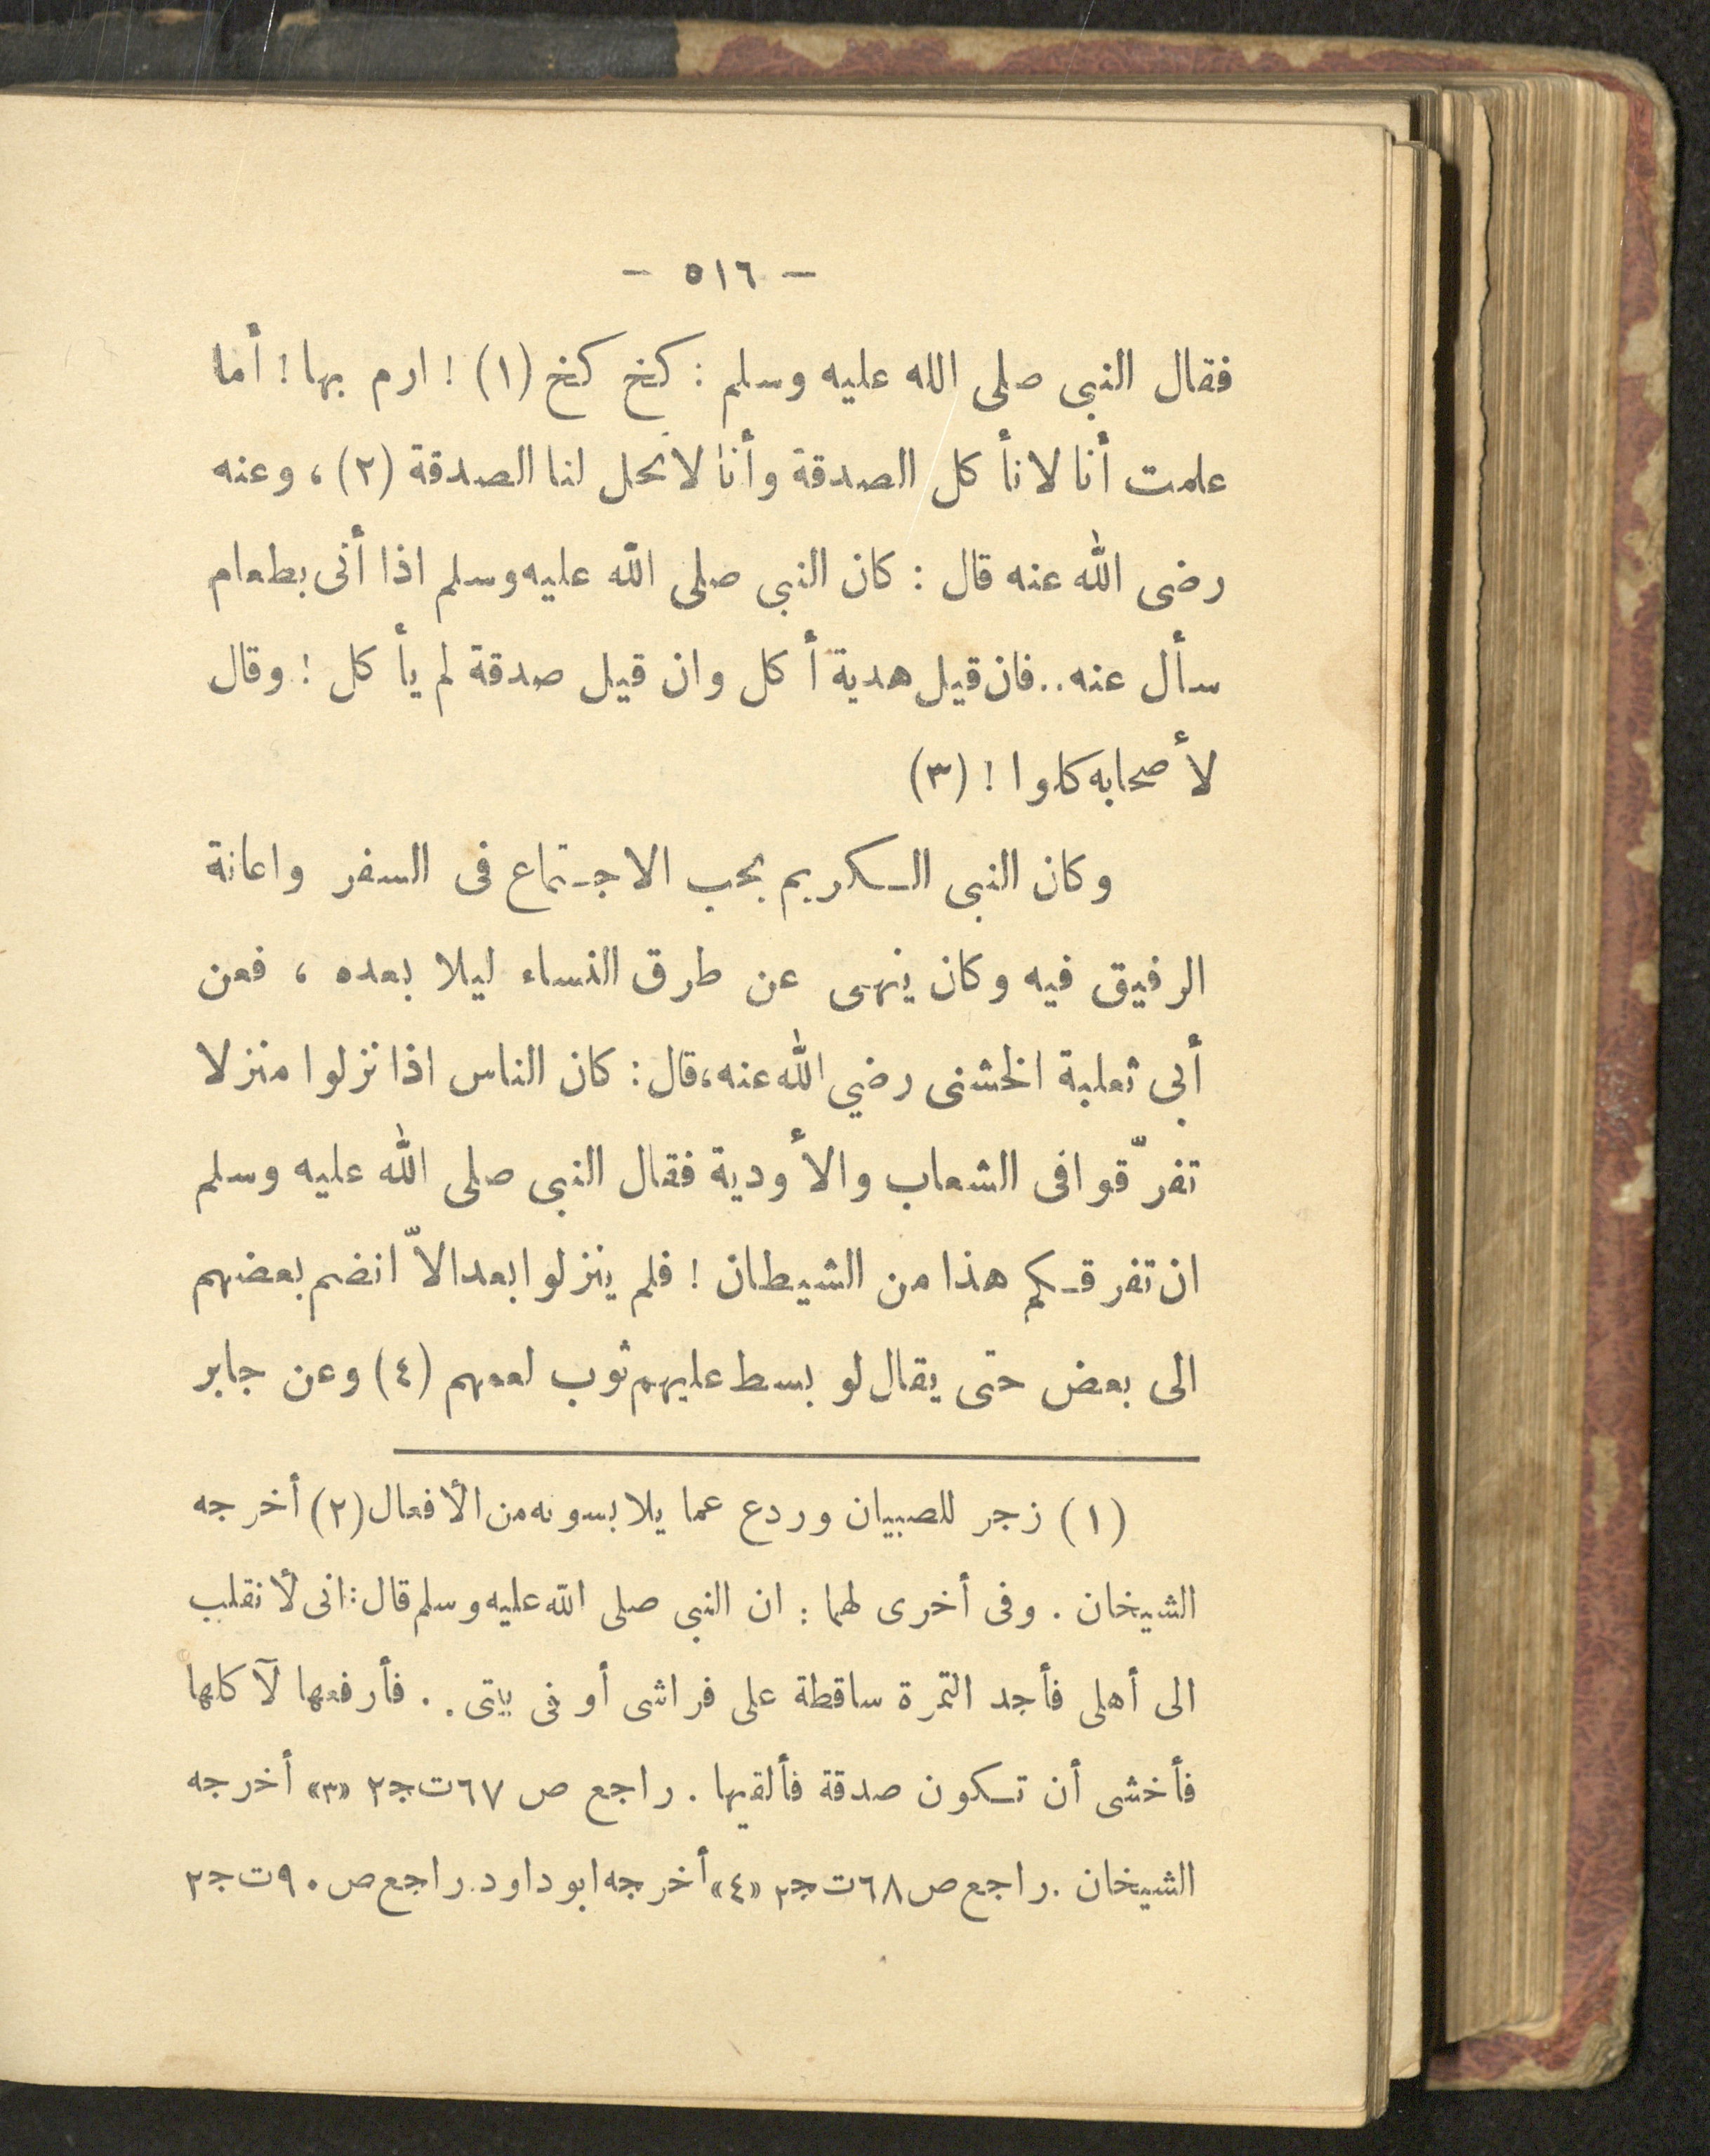 — ٥١٦ —
فقال النبى صلى الله عليه وسلم : كخ كخ (١) ! ارم بها ! أما
علمت أنا لا نأكل الصدقة وأنا لا تحل لنا الصدقة (٢) ، وعنه
رضى الله عنه قال : كان النبى صلى الله عليه وسلم اذا أتى بطعام
سأل عنه .. فان قيل هدية أكل وان قيل صدقة لم يأكل ! وقال
لأصحابه كلوا ! (٣)
وكان النبى الكريم يحب الاجتماع فى السفر واعانة
الرفيق فيه وكان ينهى عن طرق النساء ليلا بعده ، فعن
أبى ثعلبة الخشنى رضي الله عنه، قال : كان الناس اذا نزلوا منزلا
تفرّقوا فى الشعاب والأودية فقال النبى صلى الله عليه وسلم
ان تفرقكم هذا من الشيطان ! فلم ينزلوا بعد الاّ انضم بعضهم
الى بعض حتى يقال لو بسط عليهم ثوب لعمهم (٤) وعن جابر
(١) زجر للصبيان وردع عما يلابسونه من الأفعال (٢) أخرجه
الشيخان . وفى أخرى لهما : ان النبى صلى الله عليه وسلم قال : انى لأنقلب
الى أهلى فأجد التمرة ساقطة على فراشى أو فى بيتى . . فأرفعها لآكلها
فأخشى أن تكون صدقة فألقيها . راجع ص ٦٧ ت ج ٢ «٣» أخرجه
الشيخان . راجع ص ٦٨ ت ج ٢ «٤» أخرجه ابو داود . راجع ص ٩٠ ت ج ٢